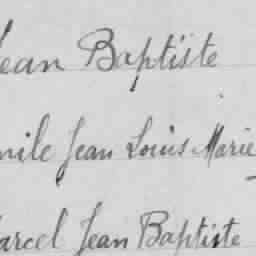 Jean Baptiste
mile Jean Louis Marie
arcel Jean Baptiste